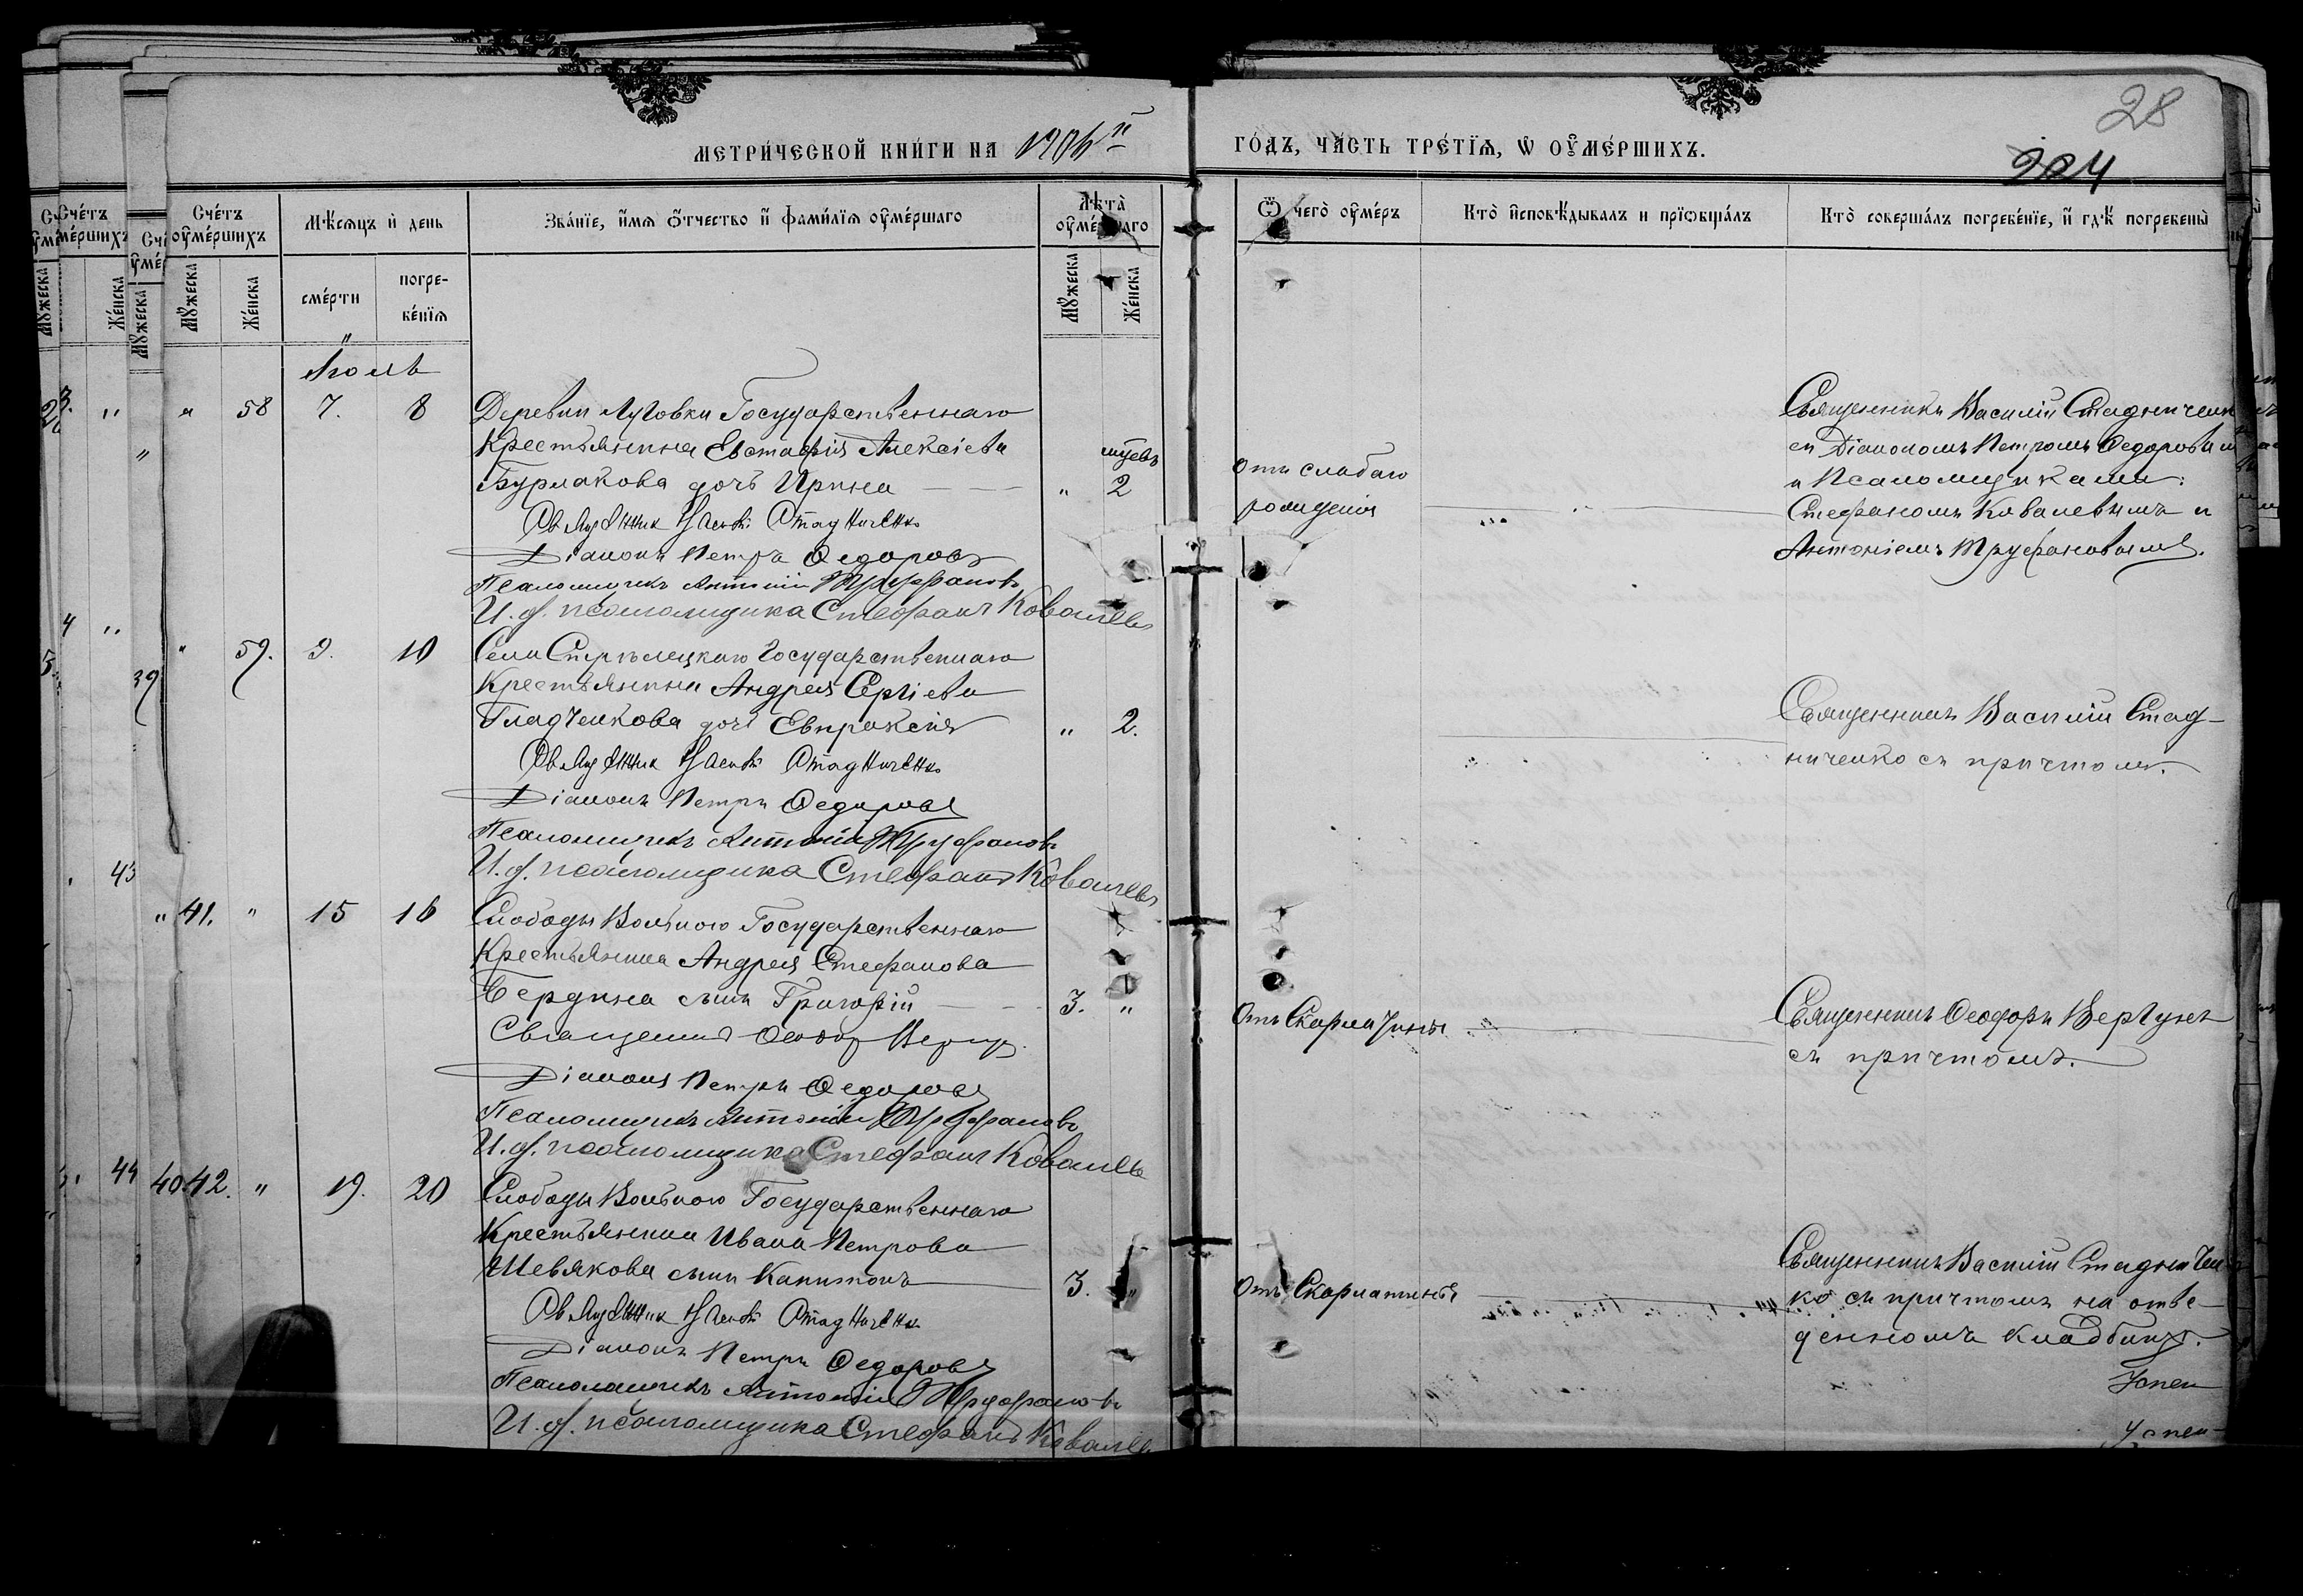 28
МЕТРИ́ЧЕСКОЙ КНИ́ГИ НА 1906й
ГО́ДЪ, ЧА́СТЬ ТРЕ́ТЇѦ, Ѡ ОУМЕ́РШИХЪ.
Сче́тъ оумершихъ
Мѣсяцъ и день
Зва́нїе, и́мя о́тчество и фами́лїя оуме́ршаго
Лѣта̀ оуме́ршаго
Ѿ чегѡ̀ оуме́ръ
Кто̀ исповѣ́дывалъ и прїѡбща́лъ
Кто̀ соверша́лъ погребе́нїе, и гдѣ̀ погребены̀
Му́жеска
Же́нска
сме́рти
погребе́нїя
Му́жеска
Же́нска
Іюль
" 58 7. 8 Деревни Луговки Государственнаго
Крестьянина Евстафія Алексіева
Бурлакова дочь Ирина " 2
Священник Василій Стадниченко
Діаконъ Петръ Федоровъ
Псаломщикъ Антоній Труфановъ
И. д. псаломщика Стефанъ Ковалевъ
Отъ слабаго
рожденія
Священникъ Василій Стадниченко
съ Діакономъ Петромъ Федоровымъ
и Псаломщиками:
Стефаномъ Ковалевымъ и
Антоніемъ Труфановымъ.
" 59. 9. 10 Села Стрѣлецкаго Государственнаго
Крестьянина Андрея Сергіева
Гладченкова дочь Евпраксія " 2.
Священник Василій Стадниченко
Діаконъ Петръ Федоровъ
Псаломщикъ Антоній Труфановъ
И. д. псаломщика Стефанъ Ковалевъ
Священникъ Василій Стад-
ниченко съ причтомъ.
41. " 15 16 Слободы Вольного Государственнаго
Крестьянина Андрея Стефанова
Бердина сынъ Григорій 3. "
Священникъ Феодоръ Вергунъ
Діаконъ Петръ Федоровъ
Псаломщикъ Антоній Труфановъ
И. д. псаломщика Стефанъ Ковалевъ
Отъ Скарлатины
Священникъ Феодоръ Вергунъ
съ причтомъ.
42. " 19. 20 Слободы Вольного Государственнаго
Крестьянина Ивана Петрова
Шевякова сынъ Капитонъ 3. "
Священник Василій Стадниченко
Діаконъ Петръ Федоровъ
Псаломщикъ Антоній Труфановъ
И. д. псаломщика Стефанъ Ковалевъ
Отъ Скарлатины
Священникъ Василій Стадничен-
ко съ причтомъ на отве-
денномъ кладбищѣ.